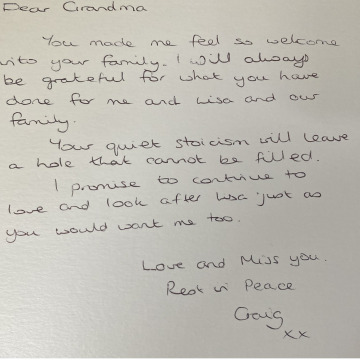 Dear Grandma
You made me feel so welcome
into your family. I will always
be grateful for what you have
done for me and Lisa and our
family.
Your quiet stoicism will leave
a hole that cannot be filled.
I promise to continue to
love and look after Lisa just as
you would want me too.
Love and Miss you.
Rest in Peace
Craig
xx